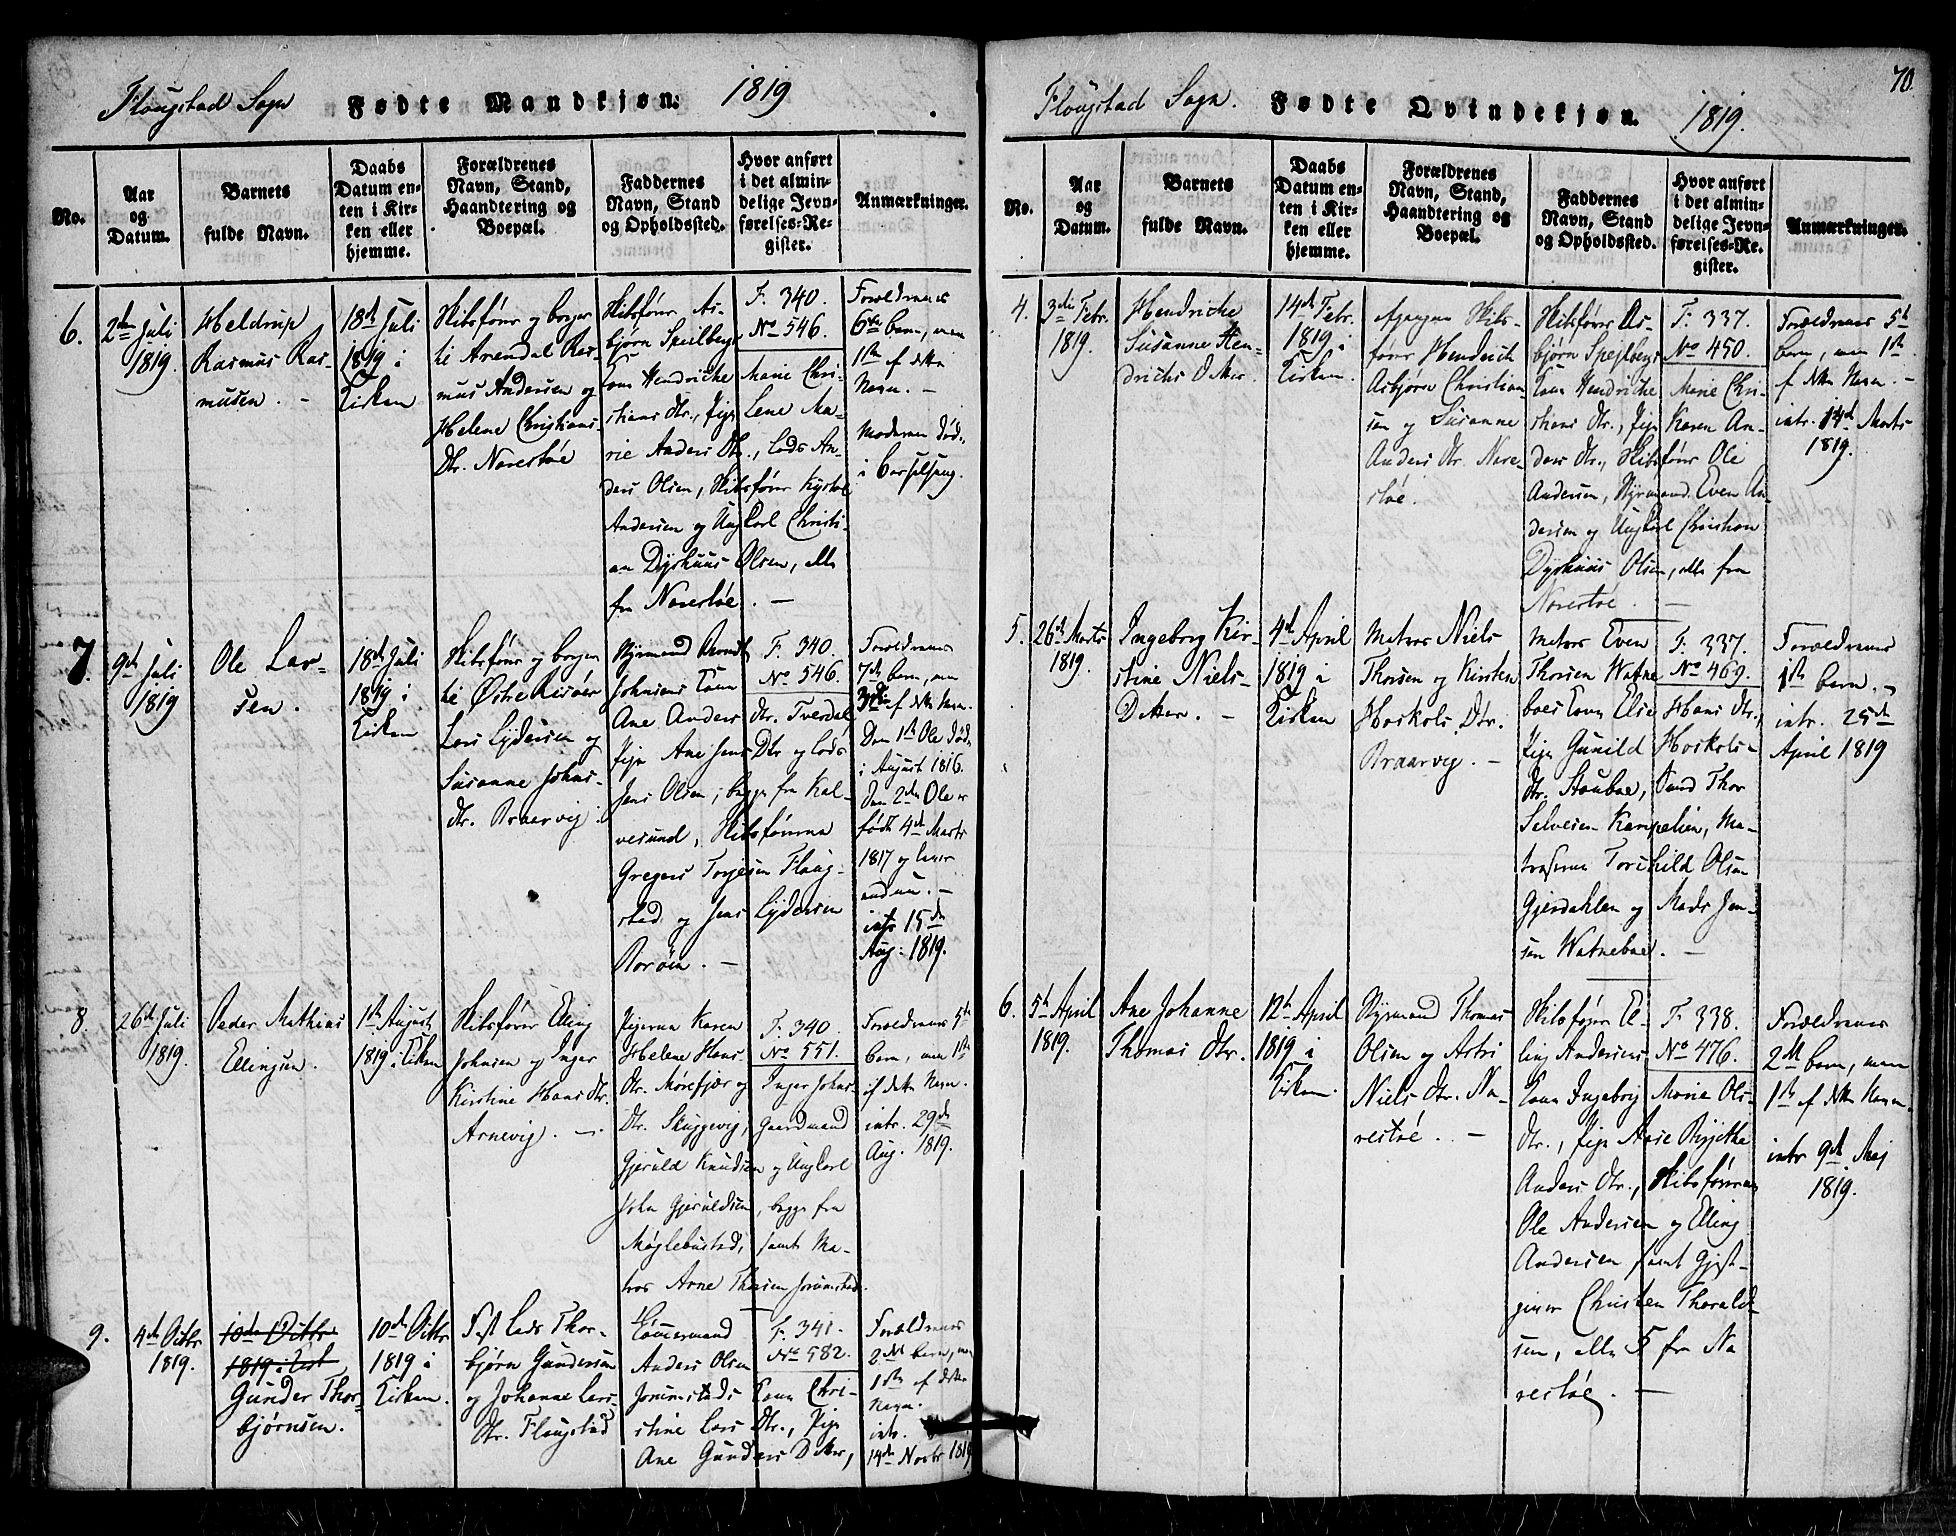 Flougstad Sogn Fødte Mandkjøn. 1819
No.
Aar
og
Datum.
Barnets
fulde Navn.
Daabs
Datum en-
ten i Kir-
ken eller
hjemme.
Forældrenes
Navn, Stand,
Haandtering og
Boepæl.
Faddernes
Navn, Stand
og Opholdssted.
Hvor anført
i det almin-
delige Jevn-
førelses-Re-
gister.
Anmærkninger.
6.
2den Juli
1819.
Heldrup
Rasmus Ras-
musen. -
18de Juli
1819 i
Kirken
Skibsfører og borger
til Arendal Ras-
mus Andersen og
Helene Christians-
Dtr. Narestøe
Skibsfører As-
bjørn Speilbergs
Kone Hendriche
Christians Dtr., Pige Lene Ma-
rie Anders Dtr., Lods An-
ders Olsen, Skibsfører
Andersen og Ungkarl Christi-
an Dyshuus Olsen, alle
fra Narestøe. -
F. 340.
No 546.
Marie
Forældrenes
6te barn, men
1ste af dette
Navn. -
Moderen død
i Barselseng.
7.
9de Juli
1819
Ole Lar-
sen.
18de Juli
1819 i
Kirken
Skibsfører og borger
til Østre Risøer
Lars Lydersen og
Susanne Johns-
dtr. Braarvig.
Styrmand Arndt
Johnsens Kone
Ane Anders dtr. Tverdal
Pige Ane Jens Dtr og Lods
Jens Olsen, begge fra Kal-
vesund, Skibsførerne
Gregers Torjesen Flaug-
stad og Jens Lydersen
Borøen. -
F. 340.
No 546.
Forældrenes
7de barn, men
3die af dette Navn.
Den 1ste Ole døde
i August 1816.
Den 2den Ole er
født 4de Marts
1817 og lever
endnu. -
intr 15de
Aug: 1819.
8.
26de Juli
1819.
Peder Mathias
Ellingsen.
1ste August
1819 i Kirken
Skibsfører Elling
Johnsen og Inger
Kirstine Hans dtr.
Arnevig. -
Pigerne Karen
Helene Hans
Dtr. Mørefjær og Inger Johns-
Dtr. Skuggevig, Gaardmand
Gjeruld Knudsen og Ungkarl
John Gjeruldsen, begge fra
Møglebustad, samt Ma-
tros Arne Thorsen Jorunstad.
F. 340.
No 551.
Forældrenes 5te
barn, men 1ste
af dette Navn.
intr. 29de
Aug. 1819.
9.
4de Octbr
1819.
10de Octbr
1819 i Kirk
Gunder Thor-
bjørnsen.
10de Octbr
1819 i
Kirken.
Fast Lods Thor-
bjørn Gundersen
og Johanne Lars-
Dtr. Flougstad
Tømmermand
Anders Olsen
Jorunstads Kone Chri-
stine Lars Dtr., Pige
Ane Gunders Datter,
F. 341.
No 582.
Forældrenes
2det barn, men
1ste af dette
Navn.
intr.
14de Novbr 1819
70.
Flougstad Sogn. Fødte Qvindekjøn. 1819.
No.
Aar
og
Datum.
Barnets
fulde Navn.
Daabs
Datum en-
ten i Kir-
ken eller
hjemme.
Forældrenes
Navn, Stand,
Haandtering og
Boepæl.
Faddernes
Navn, Stand
og Opholdssted.
Hvor anført
i det almin-
delige Jevn-
førelses-Re-
gister.
Anmærkninger.
4.
3die Febr.
1819.
Hendriche
Susanne Hen-
drichs Datter.
14de Febr.
1819 i
Kirken.
Skibs-
fører Hendrich
Asbjørn Christian-
sen og Susanne
Anders Dtr. Nare-
støe.
Skibsfører As-
bjørn Spejlbergs
Kone Hendriche Marie Chri-
stians Dtr., Pige Karen An-
ders Dtr., Skibsfører Ole
Andersen, Styrmand Even An-
dersen og Ungkarl Christian
Dyshuus Olsen, alle fra
Narestøe. -
F. 337.
No 450.
Forældrenes 5te
barn, men 1ste
af dette Navn. -
intr. 14de Marts
1819.
5.
26de Marts
1819.
Ingeborg Kir-
stine Niels-
Datter. -
4de April
1819 i
Kirken
Matros Niels
Thorsen og Kirsten
Hoskols Dtr.
Braarvig. -
Matros Even
Thorsen Watne-
boes Kone Else Hans Dtr.,
Pige Gunild Hoskols-
Dtr. Stoubøe, Svend Thor
Salvesen Kampelien, Ma-
troserne Torchild Olsen
Gjerdahlen og Mads Jen-
sen Watneboe. -
F. 337.
No 469.
Forældrenes
1ste barn. -
intr. 25de
April 1819
6.
5te April
1819.
Ane Johanne
Thomas Dtr.
12te April
1819 i
Kirken.
Styrmand Thomas
Olsen og Astri
Niels Dtr. Na-
restøe. -
Skibsfører El-
ling Andersens
Kone Ingeborg Marie Ols-
dtr., Pige Anne Birgithe
Anders Dtr., Skibsførerne
Ole Andersen og Elling
Andersen samt Gjest-
giver Christen Thorald-
sen, alle 5 fra Na
restøe. -
F. 338.
No 476.
Forældrenes
2det barn, men
1ste af dette Navn.
intr 9de Maj
1819.